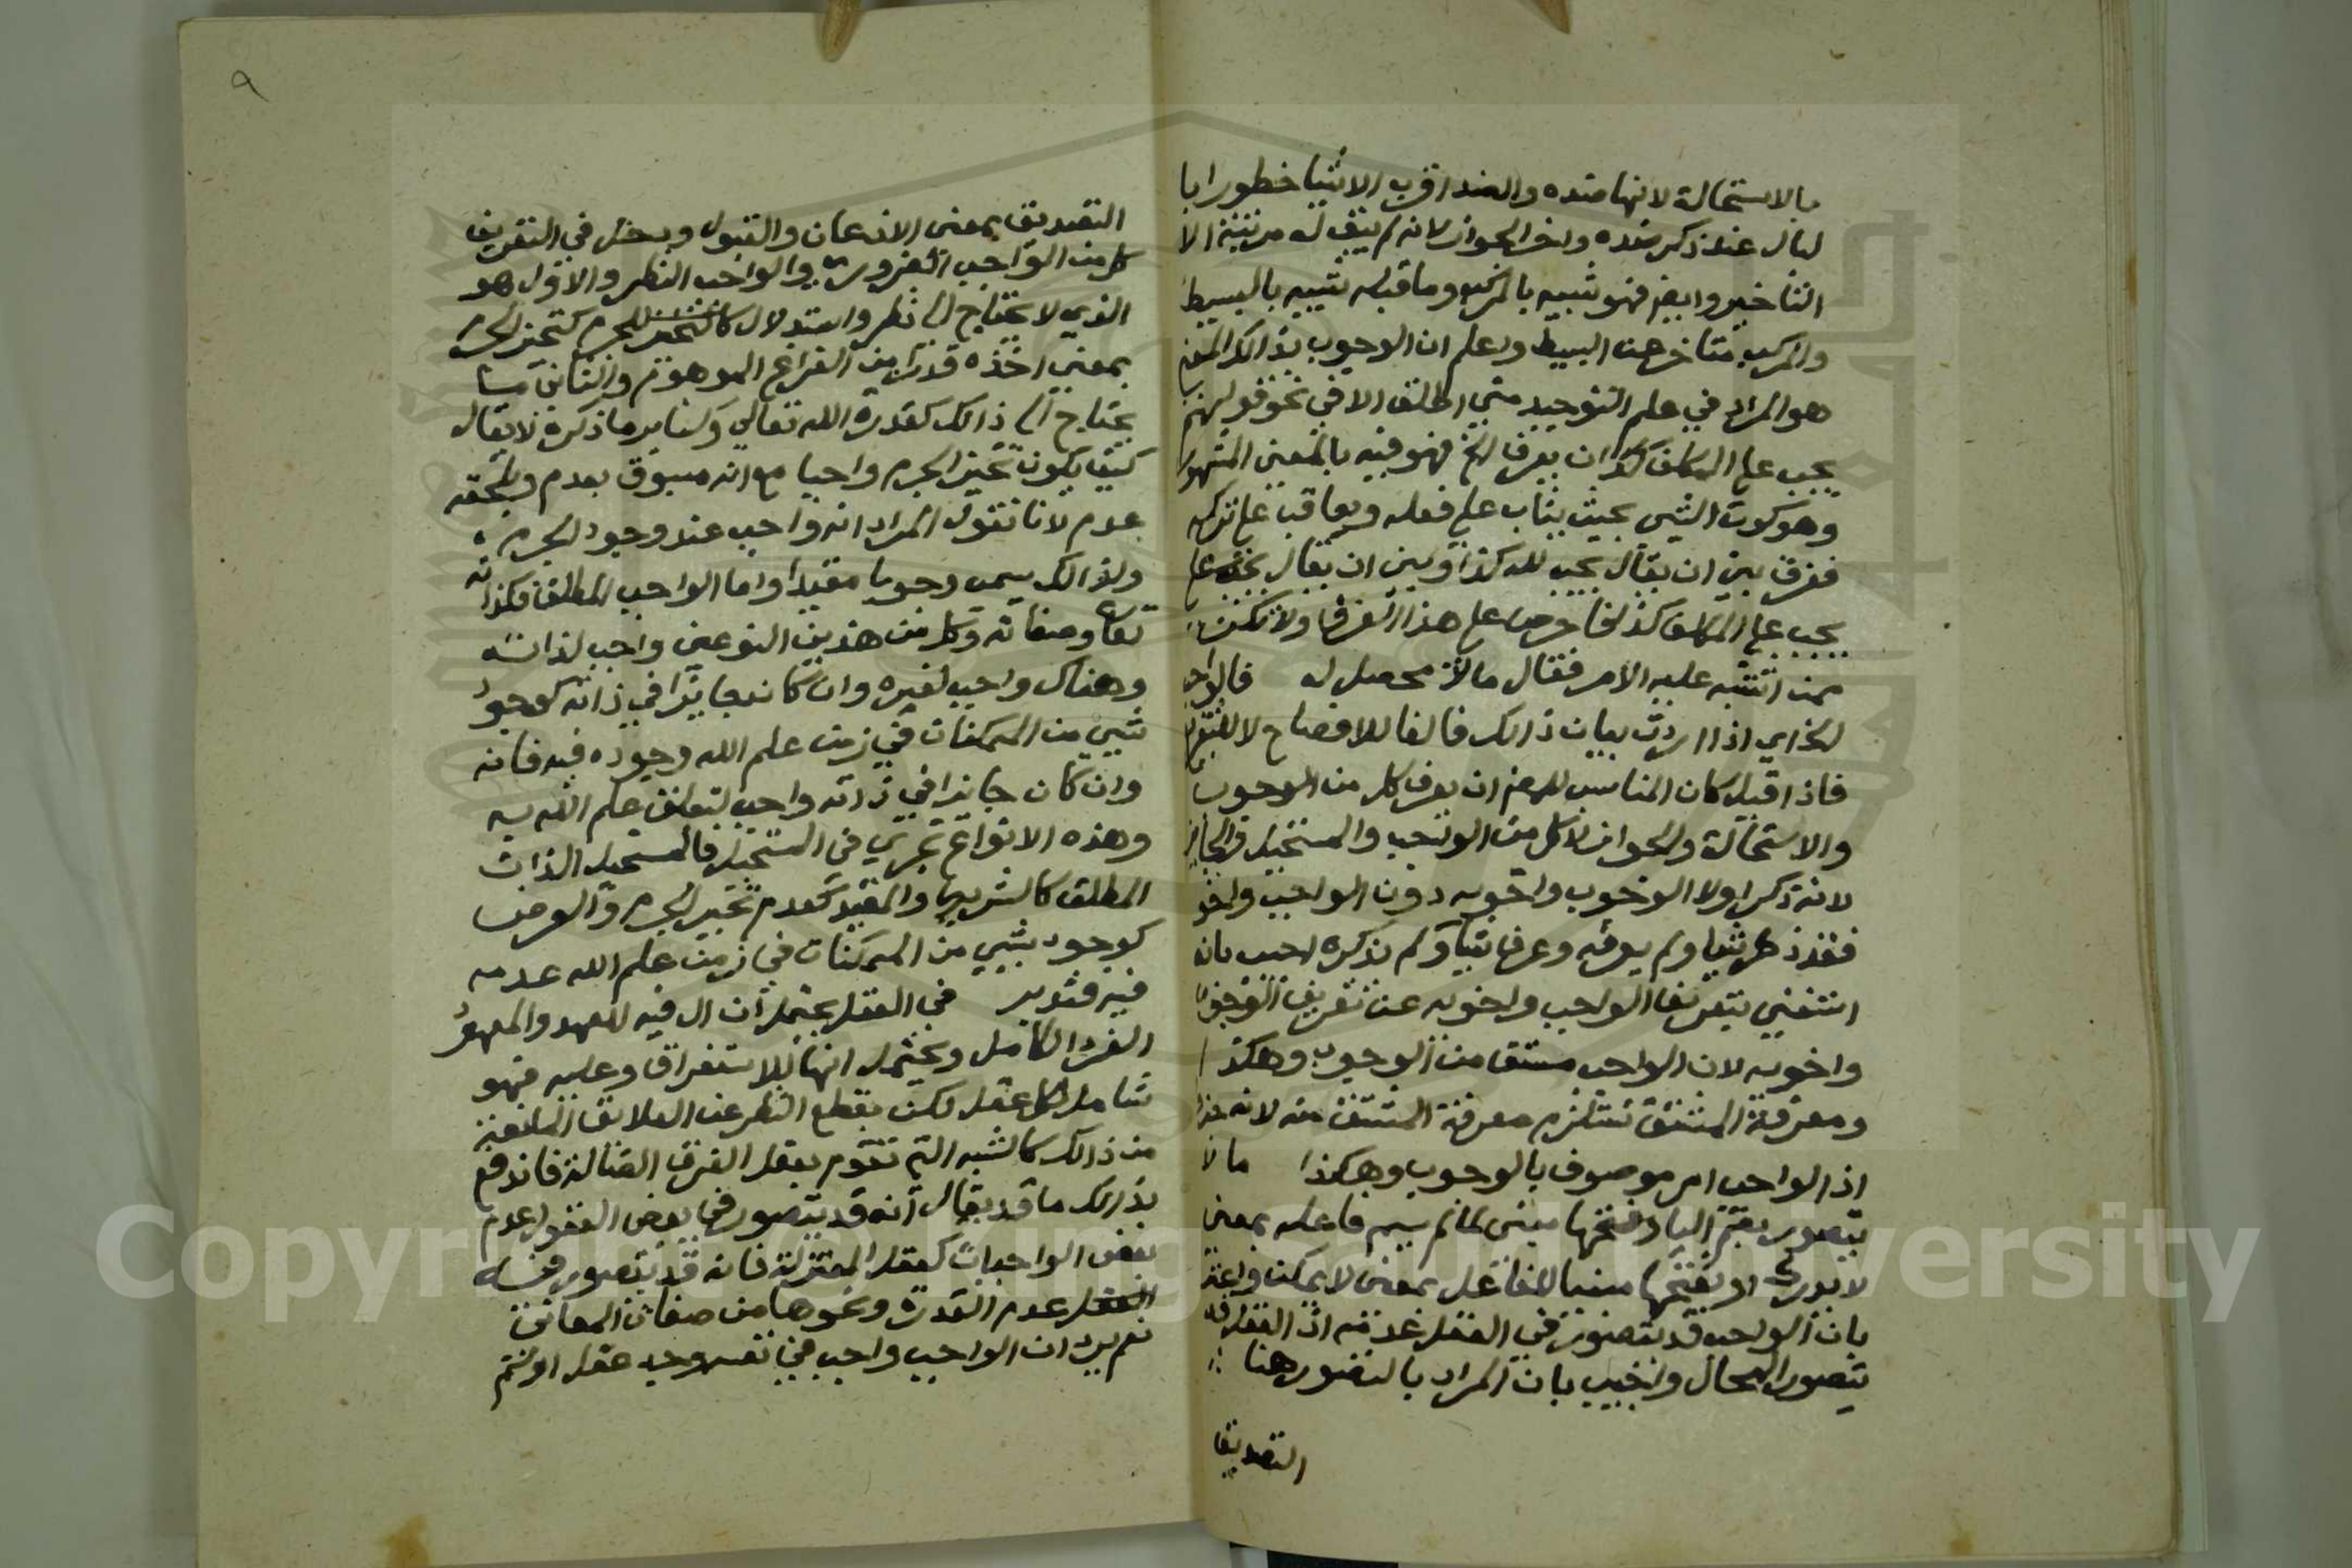 بالاستحالة لانها ضده والضد اقرب الاشيا خطورا با
لبال عند ذكر ضده واخر الجواز لانه لم يبق له مرتبة الا
التاخير وايضا فهو شبيه بالمركب وما قبله شبيه بالبسيط
والمركب متاخر عن البسيط واعلم ان الوجوب بذالك المعني
هو المراد في علم التوحيد متي اطلق الا في نحو قولهم
يجب علي المكلف ان يعرف الخ فهو فيه بالمعني المشهور
وهو كون الشي بحيث يثاب علي فعله ويعاقب علي تركه
ففرق بين ان يقال يجب لله كذا وبين ان يقال
يجب علي المكلف كذا فاحرص علي هذا الفرق ولا تكن
ممن اشتبه عليه الامر فقال مالا محصل له فالواجب
الخ اي اذا اردت بيان ذالك فالفا للافصاح لا للتفريع
فاذا قيل كان المناسب للمص ان يعرف كل من الوجوب
والاستحالة والجواز لا كل من الواجب والمستحيل والجايز
لانه ذكر اولا الوجوب واخويه دون الواجب واخويه
فقد ذكر شيا ولم يعرفه وعرف شيا ولم يذكره اجيب بانه
استغني بتعريف الواجب واخويه عن تعريف الوجوب
واخويه لان الواجب مشتق من الوجوب وهكذا
ومعرفة المشتق تستلزم معرفة المشتق منه لانه جزا
اذ الواجب امر موصوف بالوجوب وهكذا ما لا
يتصور بضم الياء وفتحها مبني لما لم يسم فاعله بمعني
لا يدرك او بفتحها مبنيا للفاعل بمعني لا يمكن واعترض
بان الواجب قد يتصور في العقل عدمه اذ العقل قد
يتصور المحال واجيب بان المراد بالتصور هنا
التصديق
٩
التصديق بمعني الاذعان والقبول ودخل في التعريف
كل من الواجب الضروري والواجب النظري والاول هو
الذي لا يحتاج الي نظر واستدلال كتحيز الجرم
بمعني اخذه قدرا من الفراغ الموهوم والثاني ما
يحتاج الي ذالك كقدرة الله تعالي وكسائر ما ذكره لا يقال
كيف يكون تحيز الجرم واجبا مع انه مسبوق بعدم ويلحقه
عدم لانا نقول المراد انه واجب عند وجود الجرم
ولذالك يسمي وجوبا مقيدا واما الواجب المطلق فكذاته
تعالي وصفاته وكل من هذين النوعين واجب لذاته
وهناك واجب لغيره وان كان جايزا في ذاته كوجود
شي من الممكنات في زمن علم الله وجوده فيه فانه
وان كان جايزا في ذاته واجب لتعلق علم الله به
وهذه الانواع تجري في المستحيل فالمستحيل الذاتي
المطلق كالشريك والمقيد كعدم تحيز الجرم والعرضي
كوجود شي من الممكنات في زمن علم الله عدمه
فيه فتدبر في العقل يحتمل ان ال فيه للعهد والمعهود
الفرد الكامل ويحتمل انها للاستغراق وعليه فهو
شامل لكل عقل لكن بقطع النظر عن العلايق المانعة
من ذالك كالشبه التي تقوم بعقل الفرق الضالة فاندفع
بذالك ما قد يقال انه قد يتصور في بعض العقول عدم
بعض الواجبات كعقل المعتزلة فانه قد يتصور فيه
عدم القدرة ونحوها من صفات المعاني
نعم يرد ان الواجب واجب في نفسه وجد عقل او لم